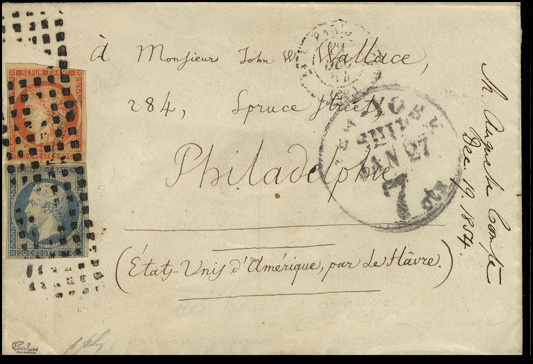 à Monsieur John W. Wallace,
284, Spruce Street,
Philadelphie
(États-Unis d'Amérique, par le Hâvre.)
M. Auguste Comte
Dec. 19. 1854.
PARIS
NEW YORK
SHIP
JAN 27
7
cts
REPUB. FRANC.